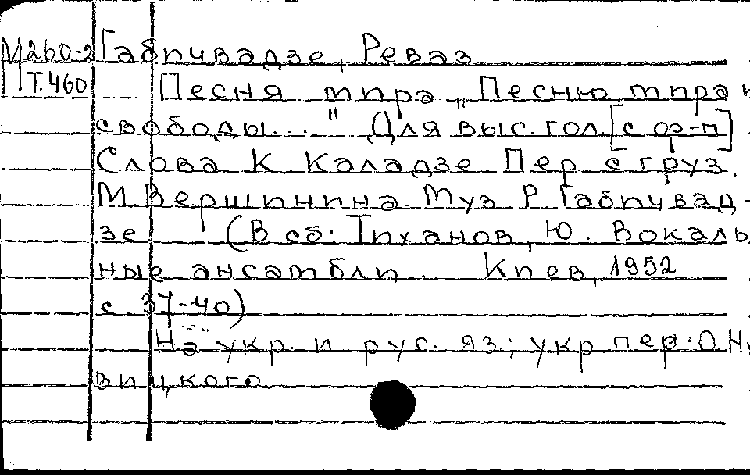 М260-2 Габичвадзе, Реваз
Т.460 Песня мира „Песню мира и
свободы..." Для выс. гол. [с ф-п]
Слова К Каладзе Пер с груз.
М Вершинина Муз Р Габичвад-
зе (В сб: Тиханов, Ю. Вокаль
ные ансамбли Киев, 1952
с 37-40)
На укр. и рус. яз.; укр пер. О. Н
вицкого